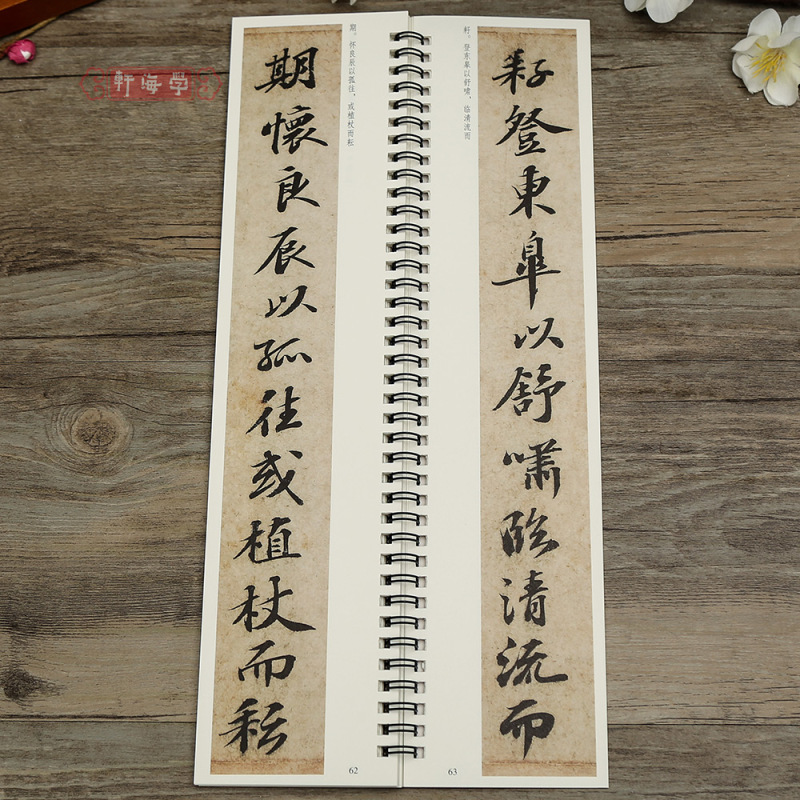 軒海学
期懷良辰以孤往或植杖而耘
期。怀良辰以孤往，或植杖而耘
62
耔登東皐以舒嘯臨清流而
耔。登东皋以舒啸，临清流而
63